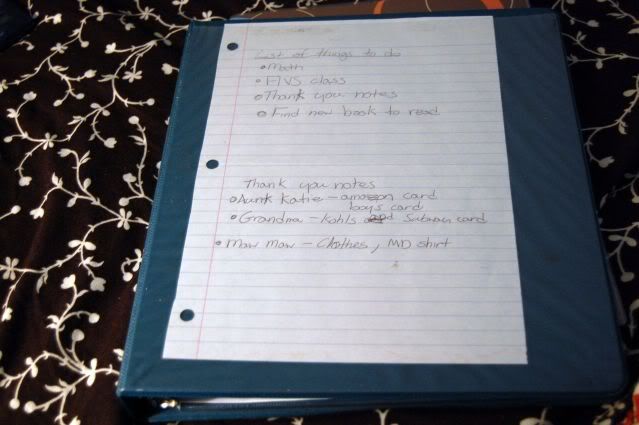 List of things to do
Math
FLVS class
Thank you notes
Find new book to read
Thank you notes
Aunt Katie - amazon card
boys card
Grandma - Kohls and Subway card
Maw maw - Clothes, MD shirt